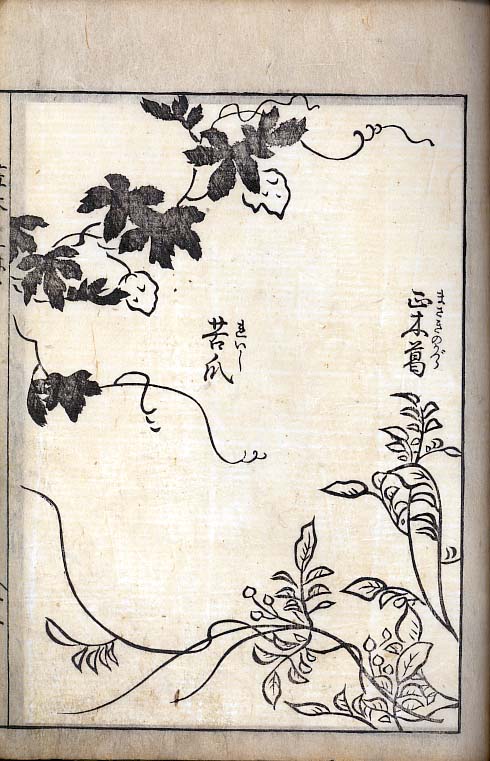 まさきのかづら
正木葛
れいし
苦瓜